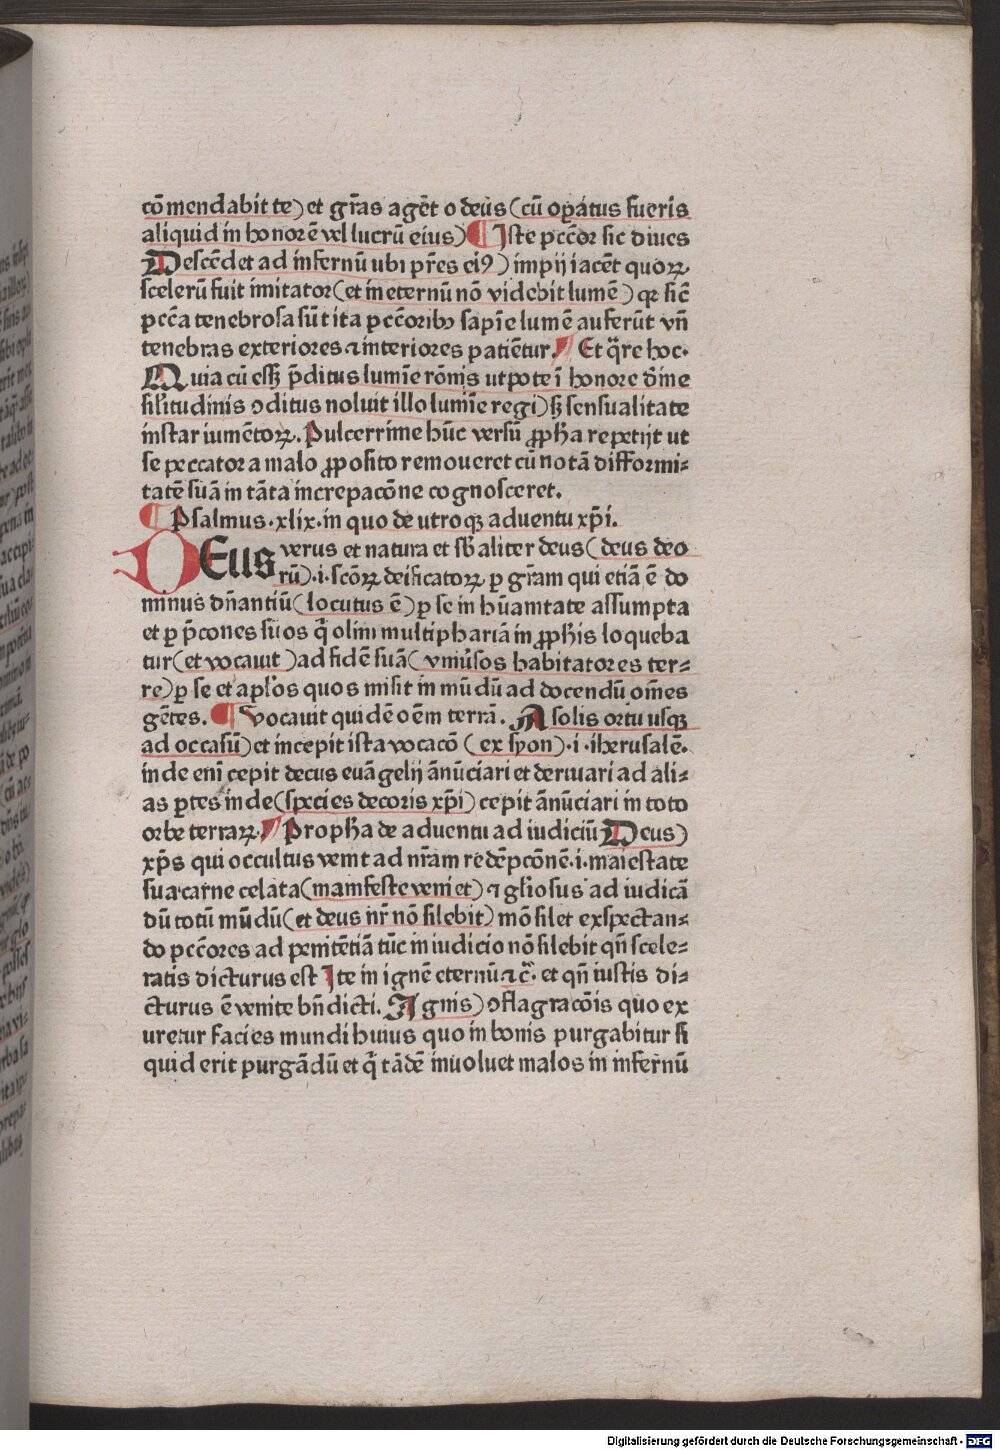 cōmendabit te) et gr̄as agēt o deus (cū opatus fueris
aliquid in honorē vel lucrū eius) ¶ Iste pccōr sic diues
Descēdet ad infernū ubi pr̄es eiꝰ) impij iacēt quoꝝ
scelerū fuit imitator (et in eternū nō videbit lumē) qr sic̄
pccā tenebrosa sūt ita pccōribꝫ sapīe lumē auferūt vn̄
tenebras exteriores ⁊ interiores patiētur. Et q̄re hoc.
Quia cū essꝫ p̄ditus lumīe rōnis utpote ī honore diuīe
sil̄itudinis ꝯditus noluit illo lumīe regi) sꝫ sensualitate
instar iumētoꝝ. Pulcerrime hūc versū ꝓph̄a repetijt ut
se peccator a malo ꝓposito remoueret cū notā difformi-
tatē suā in tāta increpacōne cognosceret.
¶ Psalmus .xlix. in quo de utroqꝫ aduentu xp̄i.
DEus verus et natura et sb̄aliter deus (deus deo
rū) .i. scōꝝ deificatoꝝ p gr̄am qui etiā ē do
minus dn̄antiū (locutus ē) ꝑ se in hūanitate assumpta
et ꝑ p̄cones suos q̄ olim multiphariā in ꝓph̄is loqueba
tur (et vocauit) ad fidē suā (vniūsos habitatores ter-
re) ꝑ se et apl̄os quos misit in mūdū ad docendū om̄es
gētes. ¶ Vocauit quidē oēm terrā. A solis ortu usqꝫ
ad occasū) et incepit ista vocacō (ex syon) .i. iherusalē.
inde eni cepit decus euāgelij ānūciari et deriuari ad ali-
as ꝑtes inde (species decoris xp̄i) cepit ānūciari in toto
orbe terraꝝ. Proph̄a de aduentu ad iudiciū Deus)
xp̄s qui occultus venit ad nr̄am redēpcōnē .i. maiestate
sua carne celata (manifeste veniet) ⁊ gl̄iosus ad iudicā
dū totū mūdū (et deus nr̄ nō silebit) mō silet exspectan-
do pccōres ad penitētiā tūc in iudicio nō silebit qn̄ scele-
ratis dicturus est Ite in ignē eternū ⁊ c̄. et qn̄ iustis di-
cturus ē venite bn̄dicti. Ignis) ꝯflagracōis quo ex
uretur facies mundi huius quo in bonis purgabitur si
quid erit purgādū et q̄ tādē inuoluet malos in infernū
Digitalisierung gefördert durch die Deutsche Forschungsgemeinschaft - DFG